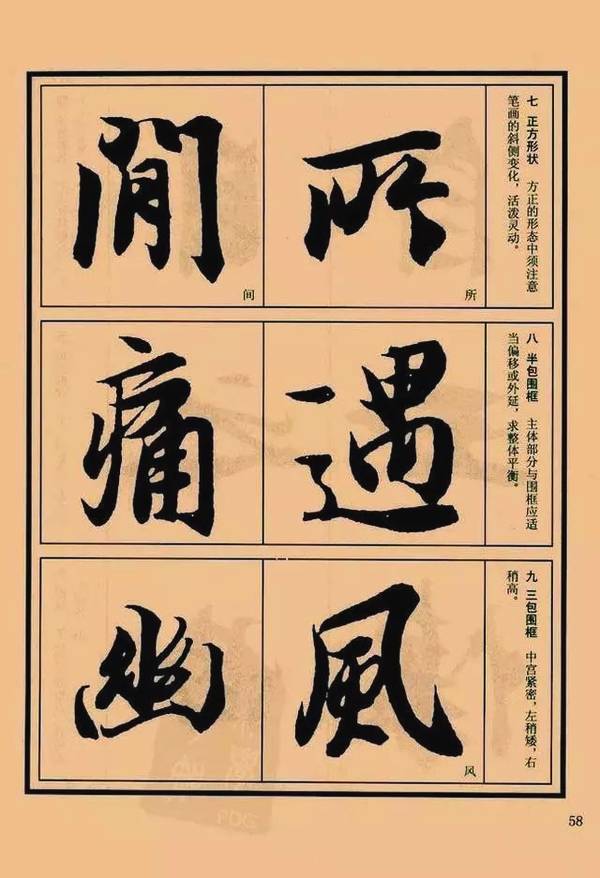 七 正方形状 方正的形态中须注意
笔画的斜侧变化，活泼灵动。
所
所
間
间
八 半包围框 主体部分与围框应适
当偏移或外延，求整体平衡。
遇
痛
九 三包围框 中宫紧密，左稍矮，右
稍高。
風
风
幽
58